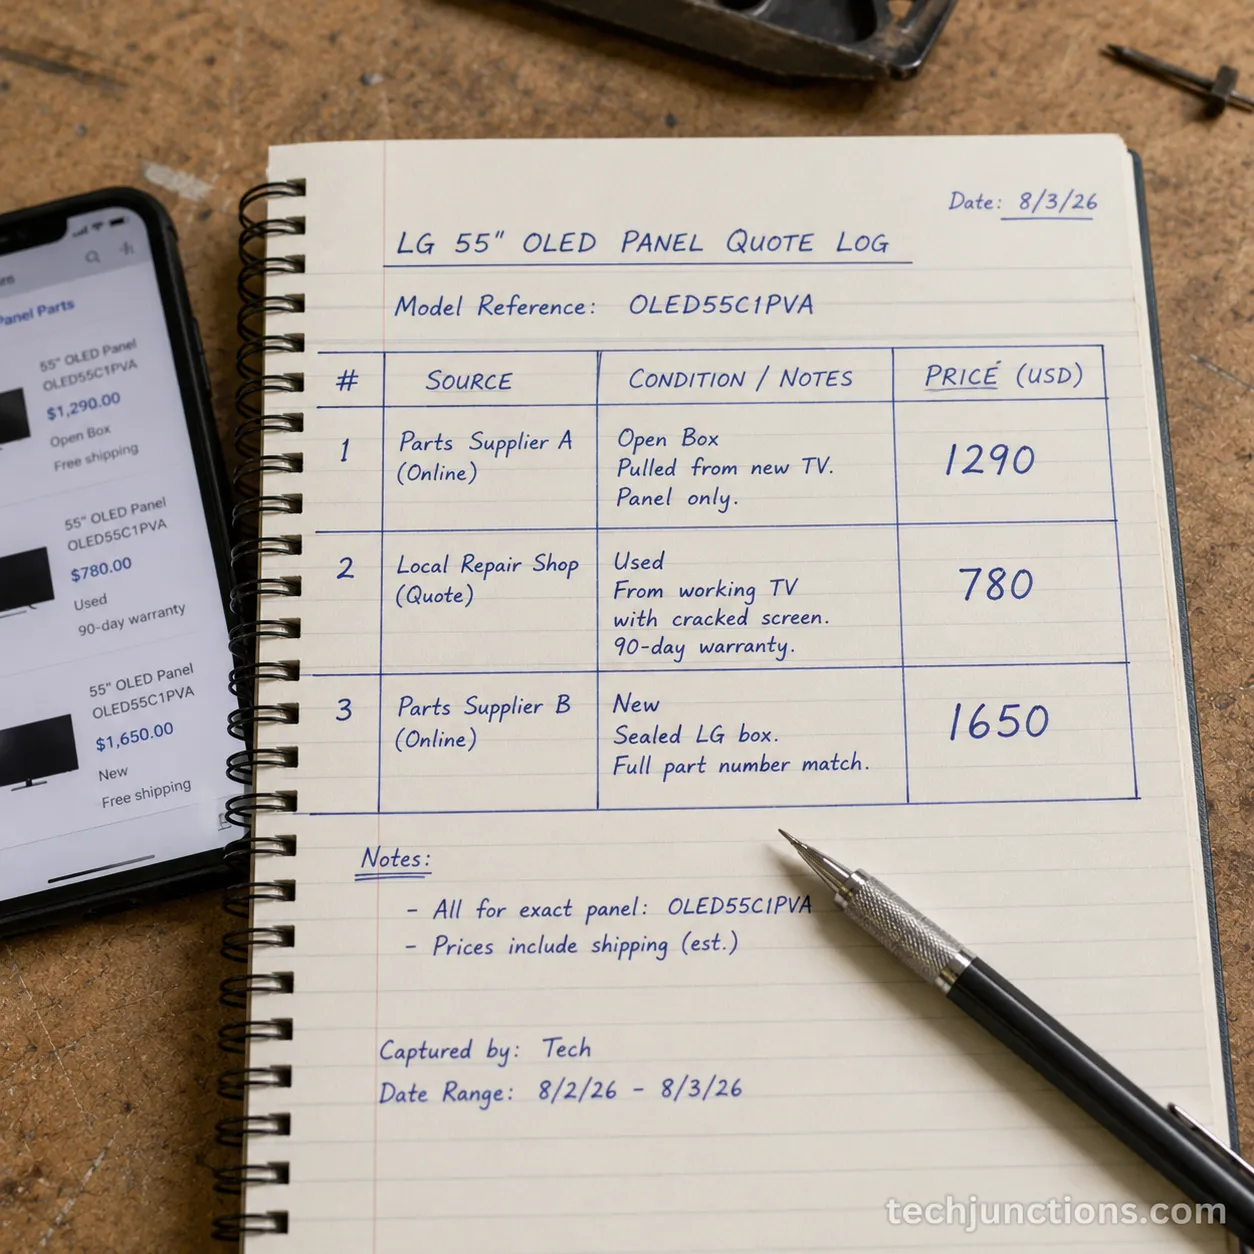 Panel Parts
55" OLED Panel
OLED55C1PVA
$1,290.00
Open Box
Free shipping
55" OLED Panel
OLED55C1PVA
$780.00
Used
90-day warranty
55" OLED Panel
OLED55C1PVA
$1,650.00
New
Free shipping
Date: 8/3/26
LG 55" OLED PANEL QUOTE LOG
Model Reference: OLED55C1PVA
# SOURCE CONDITION / NOTES PRICE (USD)
1
Parts Supplier A
(Online)
Open Box
Pulled from new TV.
Panel only.
1290
2
Local Repair Shop
(Quote)
Used
From working TV
with cracked screen.
90-day warranty.
780
3
Parts Supplier B
(Online)
New
Sealed LG box.
Full part number match.
1650
Notes:
- All for exact panel: OLED55C1PVA
- Prices include shipping (est.)
Captured by: Tech
Date Range: 8/2/26 - 8/3/26
techjunctions.com